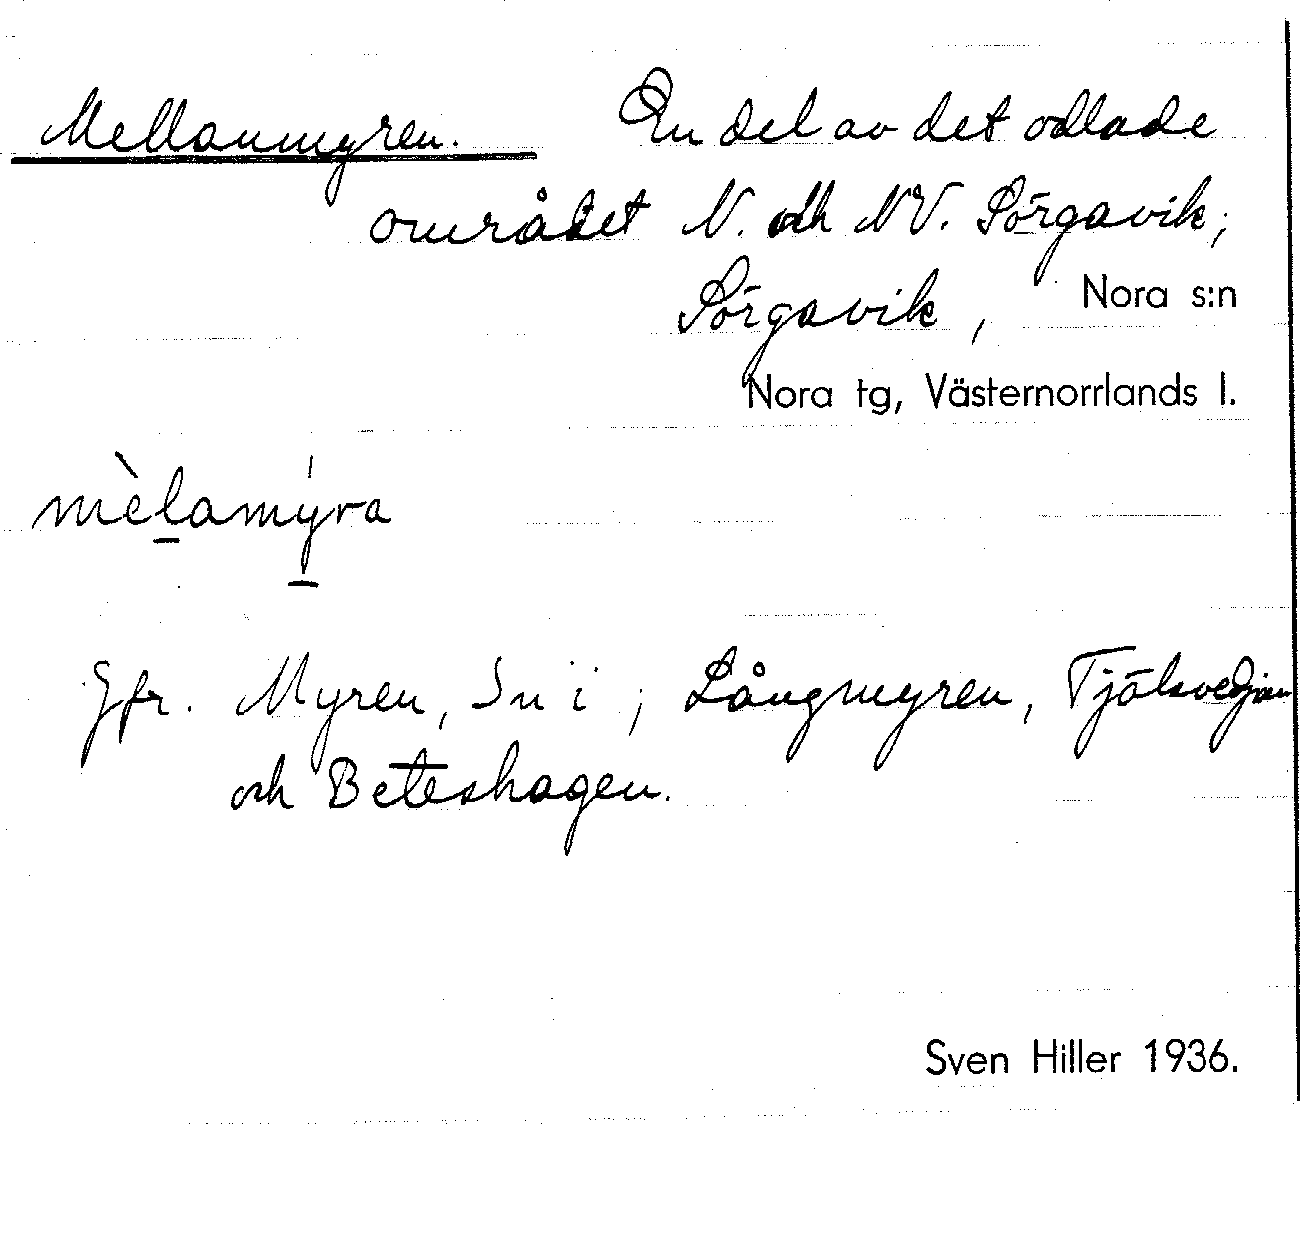 Mellanmyren. En del av det odlade
området N. och NV. Sörgavik;
Sörgavik, Nora s:n
Nora tg, Västernorrlands l.
mèlamýra
Jfr. Myren, In i; Långmyren,
och Beteshagen.
Sven Hiller 1936.